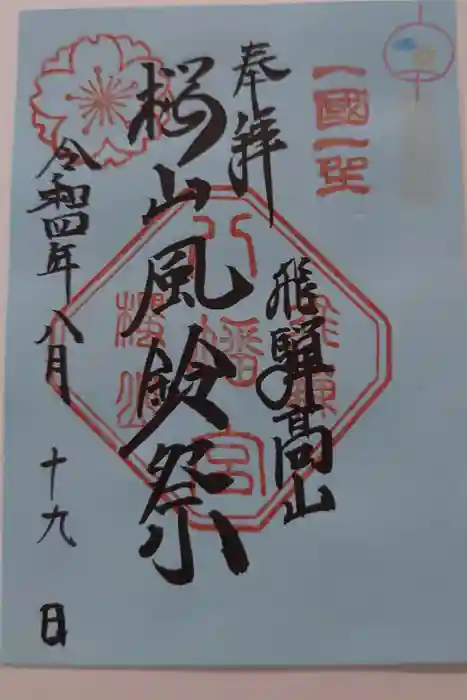 一國一聖
奉拝
飛騨高山
桜山風鈴祭
令和四年八月十九日
飛騨
八幡宮
櫻山